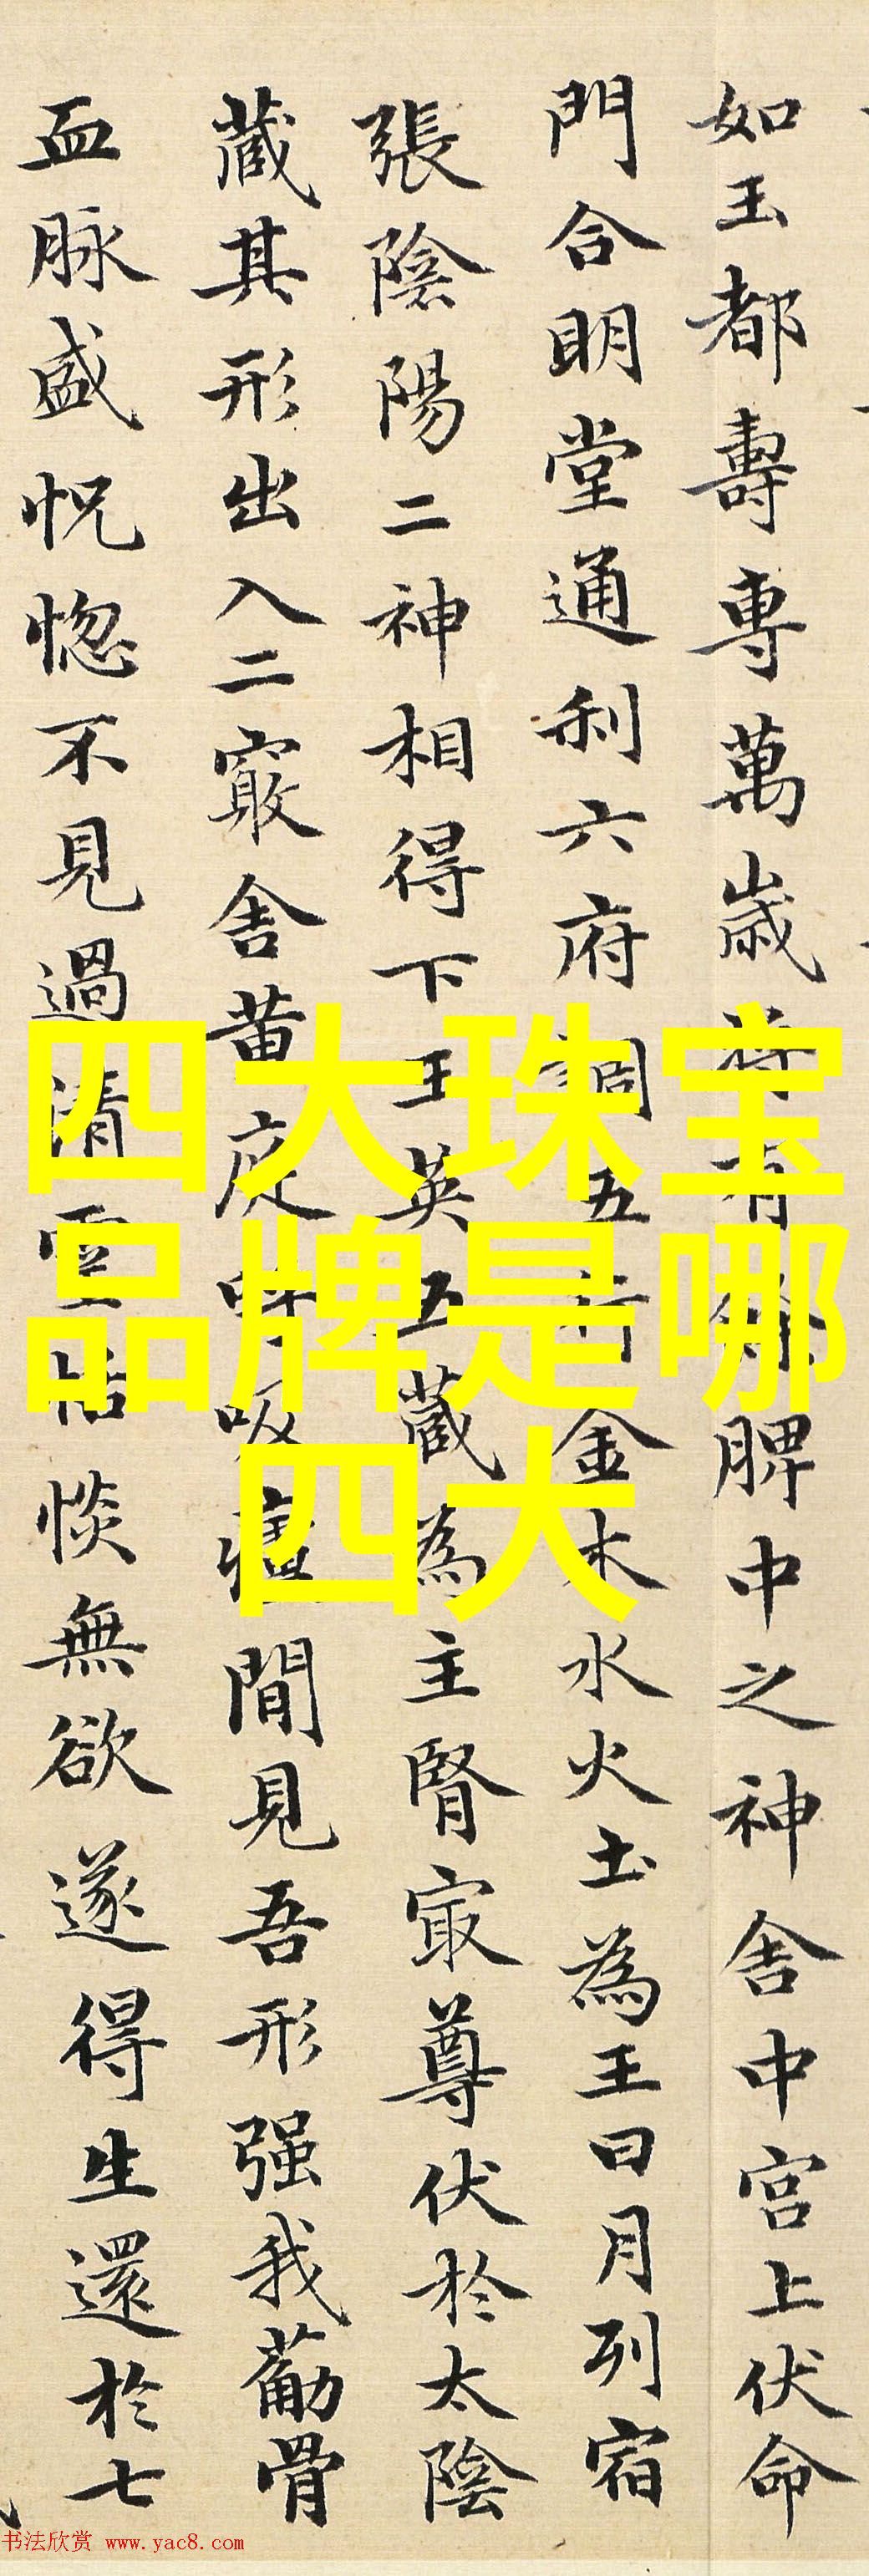 如玉都壽專萬歲將有餘脾中之神舍中宮上伏命
門合明堂通利六府調五行金木水火土為王日月列宿
張陰陽二神相得下玉英五藏為主腎冣尊伏於太陰
藏其形出入二竅舍黄庭呼吸廬間見吾形强我葿骨
血脉盛怳惚不見過清靈恬惔無欲遂得生還於七
四大珠宝
品牌是哪
四大
书法欣赏 www.yac8.com